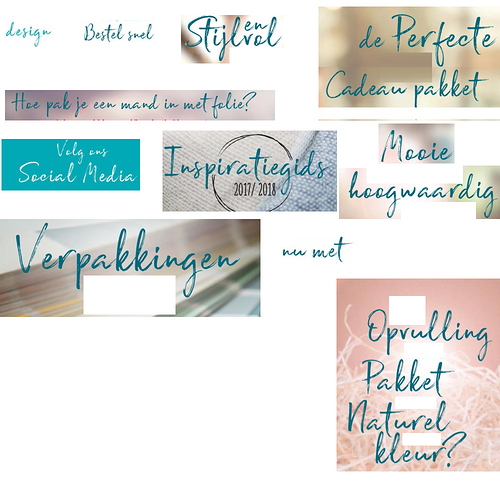 design
Bestel snel
Stijlvol en
de Perfecte
Cadeau pakket
Hoe pak je een mand in met folie?
Volg ons
Social Media
Inspiratiegids
2017/ 2018
Mooie
hoogwaardig
Verpakkingen
nu met
Opvulling
Pakket
Naturel
kleur?